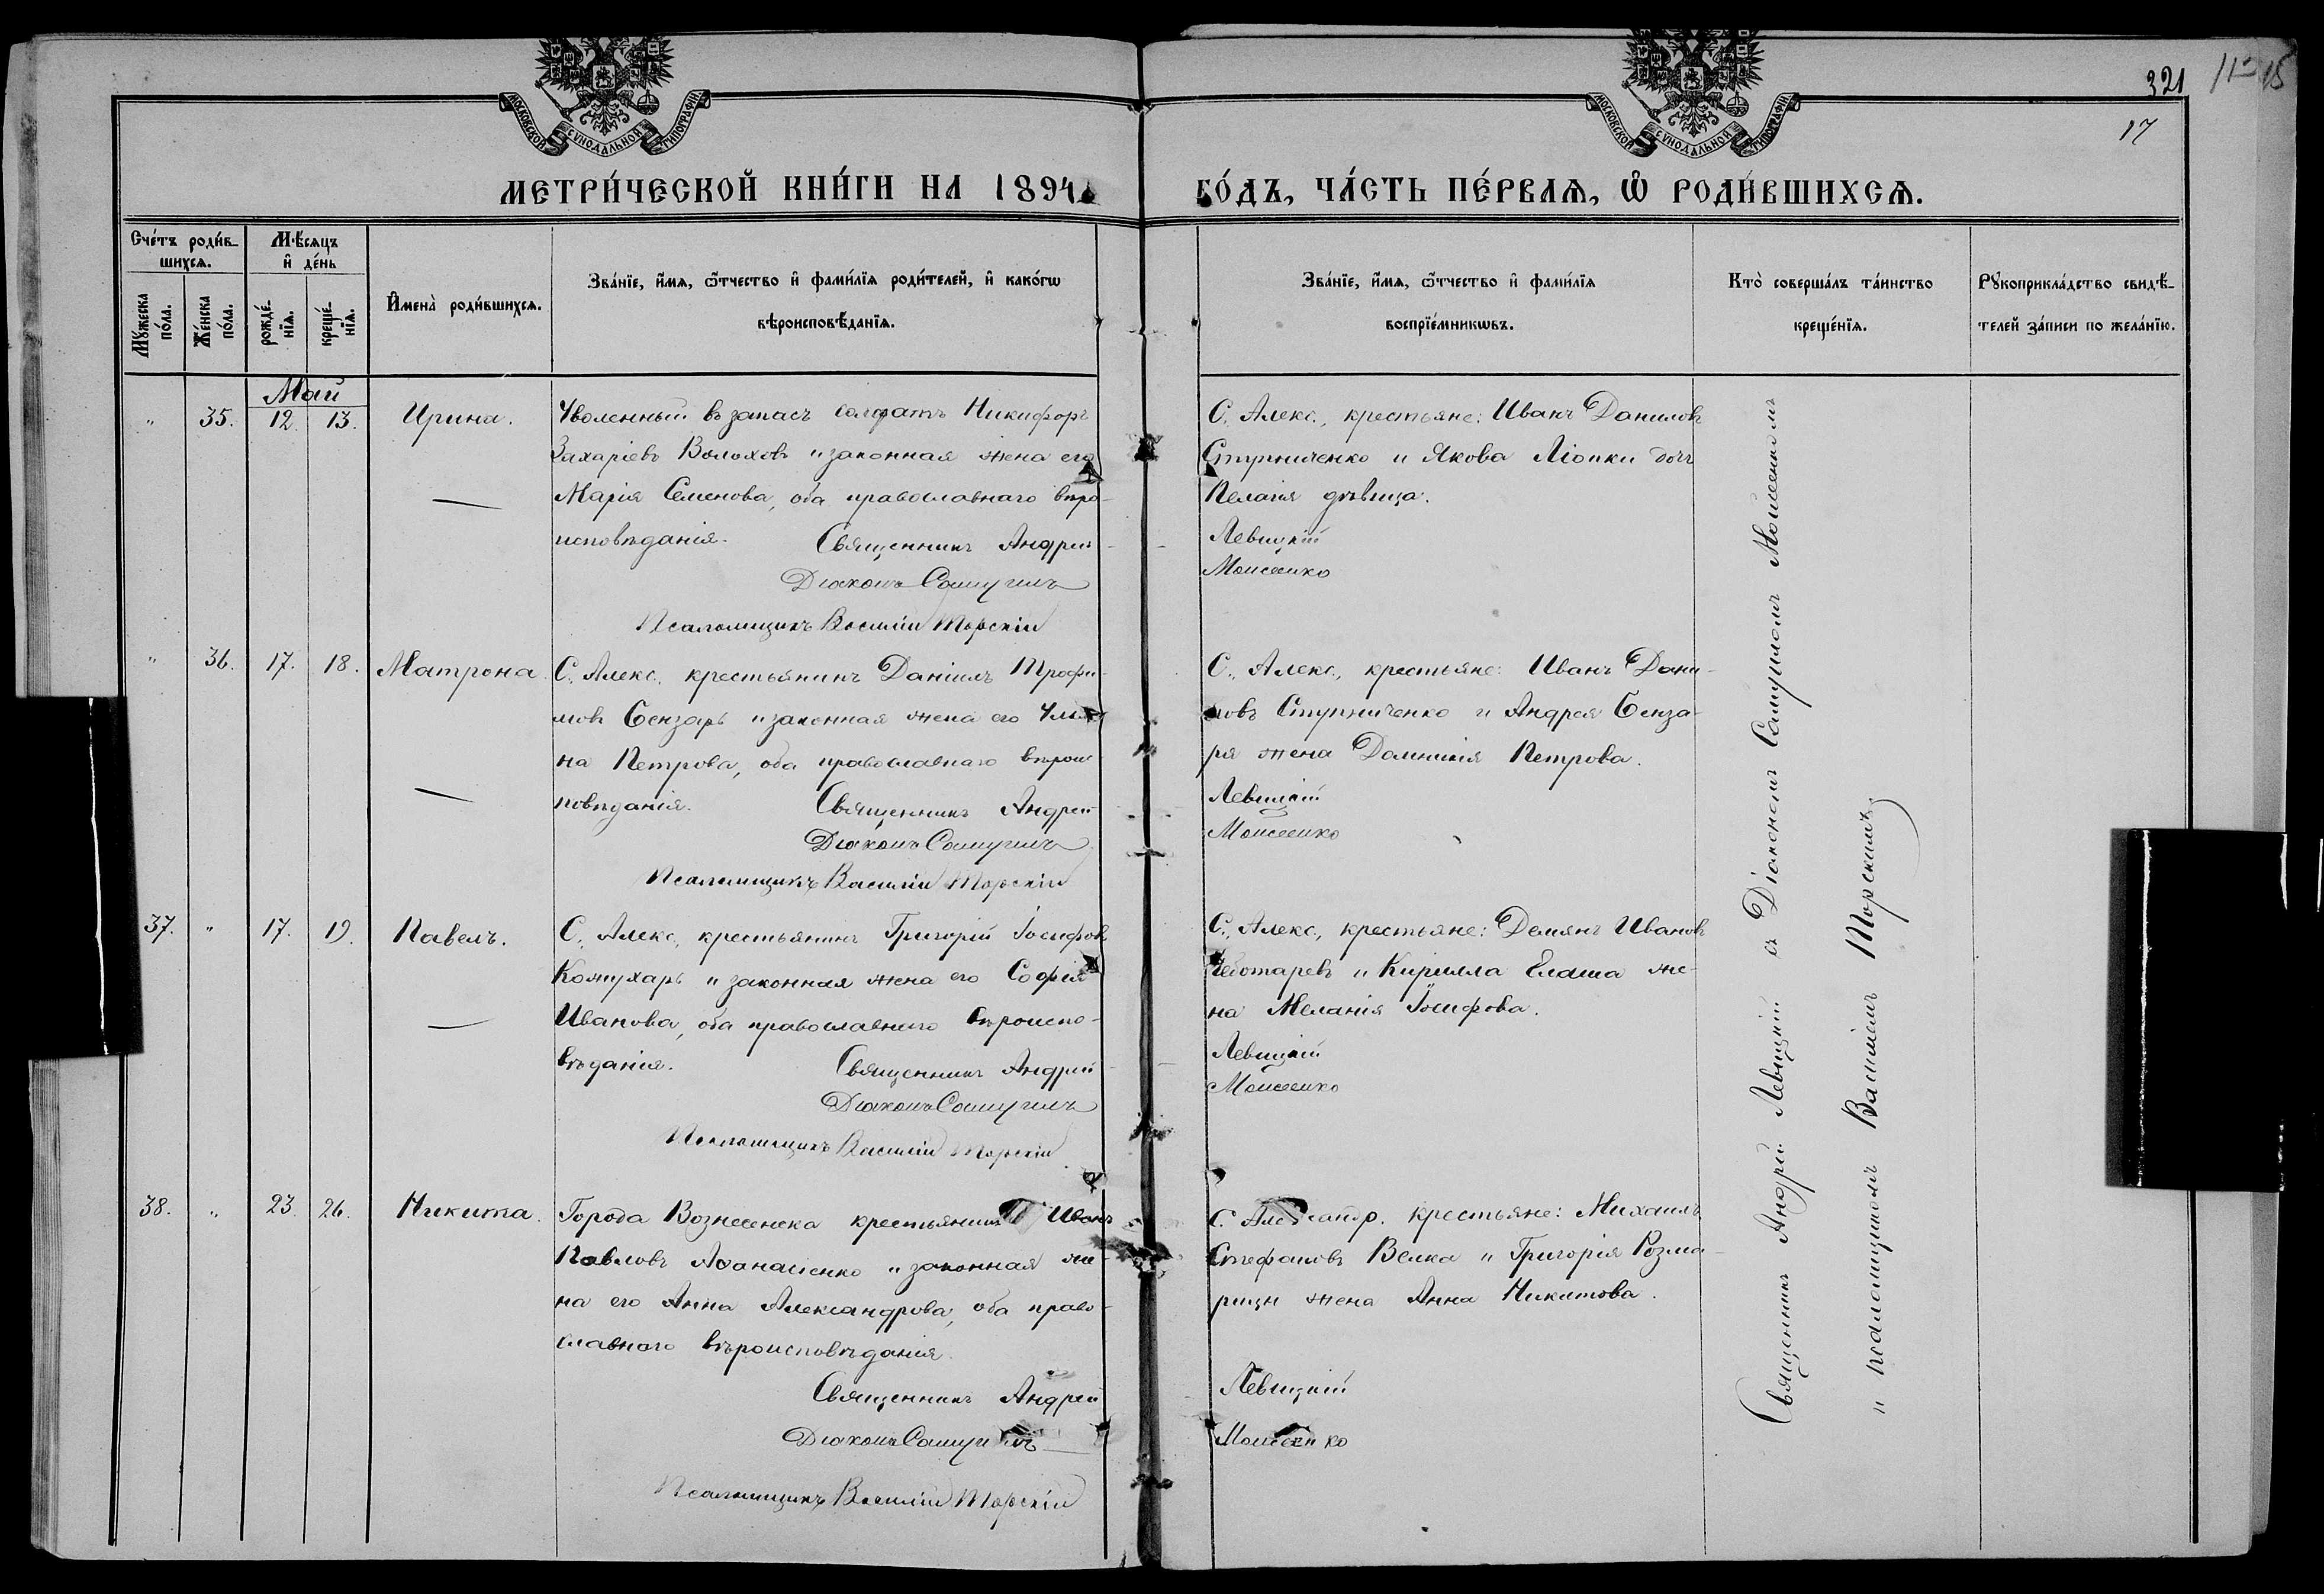 МОСКОВСКОЙ СѴНОДАЛЬНОЙ ТИПОГРАФІИ
МОСКОВСКОЙ СѴНОДАЛЬНОЙ ТИПОГРАФІИ
321
17
МЕТРИ́ЧЕСКОЙ КНИ́ГИ НА 1894
ГО́ДЪ, ЧА́СТЬ ПЕ́РВАѦ, Ѿ РОДИ́ВШИХСѦ.
Сче́тъ роди́в-
шихсѧ.
Мꙋжеска по́ла.
Же́нска по́ла.
Мѣ́сѧцъ
и҆ де́нь
рожде́-
нїѧ.
креще́-
нїѧ.
И҆мена̀ роди́вшихсѧ.
Зва́нїе, и҆́мѧ, ѻ҆́тчество и҆ фами́лїѧ роди́телей, и҆ како́гѡ
вѣроисповѣ́данїѧ.
Зва́нїе, и҆́мѧ, ѻ҆́тчество и҆ фами́лїѧ
воспрїе́мникѡвъ.
Кто̀ соверша́лъ та́инство
креще́нїѧ.
Рꙋкоприкла́дство свидѣ́-
телей за́писи по жела́нїю.
Май
" 35. 12. 13. Ирина.
Уволенный въ запасъ солдатъ Никифоръ
Захаріевъ Волоховъ и законная жена его
Марія Семенова, оба православнаго вѣро-
исповѣданія. Священникъ Андрей
Діаконъ Самуилъ
Псаломщикъ Василій Торскій
С. Алекс., крестьяне: Иванъ Даниловъ
Ступниченко и Якова Ліопки дочь
Пелагія дѣвица.
Левицкій
Моисеенко
" 36. 17. 18. Матрона
С. Алекс., крестьянинъ Даніилъ Трофи-
мовъ Бензарь и законная жена его
на Петрова, оба православнаго вѣроис
повѣданія. Священникъ Андрей
Діаконъ Самуилъ
Псаломщикъ Василій Торскій
С. Алекс., крестьяне: Иванъ Дани-
ловъ Ступниченко и Андрея Бенза-
ря жена Домникія Петрова.
Левицкій
Моисеенко
37. " 17. 19. Павелъ.
С. Алекс., крестьянинъ Григорій Іосифовъ
Кожухарь и законная жена его Софія
Иванова, оба православнаго вѣроиспо-
вѣданія. Священникъ Андрей
Діаконъ Самуилъ
Псаломщикъ Василій Торскій
С. Алекс., крестьяне: Демянъ Ивановъ
Чеботаревъ и Кирилла Елаша же-
на Меланія Іосифова.
Левицкій
Моисеенко
38. " 23. 26. Никита.
Города Вознесенска крестьянинъ Иванъ
Павловъ Аѳанасіенко и законная же-
на его Анна Александрова, оба право-
славнаго вѣроисповѣданія.
Священникъ Андрей
Діаконъ Самуилъ
Псаломщикъ Василій Торскій
С. Александр. крестьяне: Михаилъ
Стефановъ Велка и Григорія Розма-
рицы жена Анна Никитова.
Левицкій
Моисеенко
Священникъ Андрей Левицкій съ Діакономъ Самуиломъ Моисеенкомъ
и псаломщикомъ Василіемъ Торскимъ.